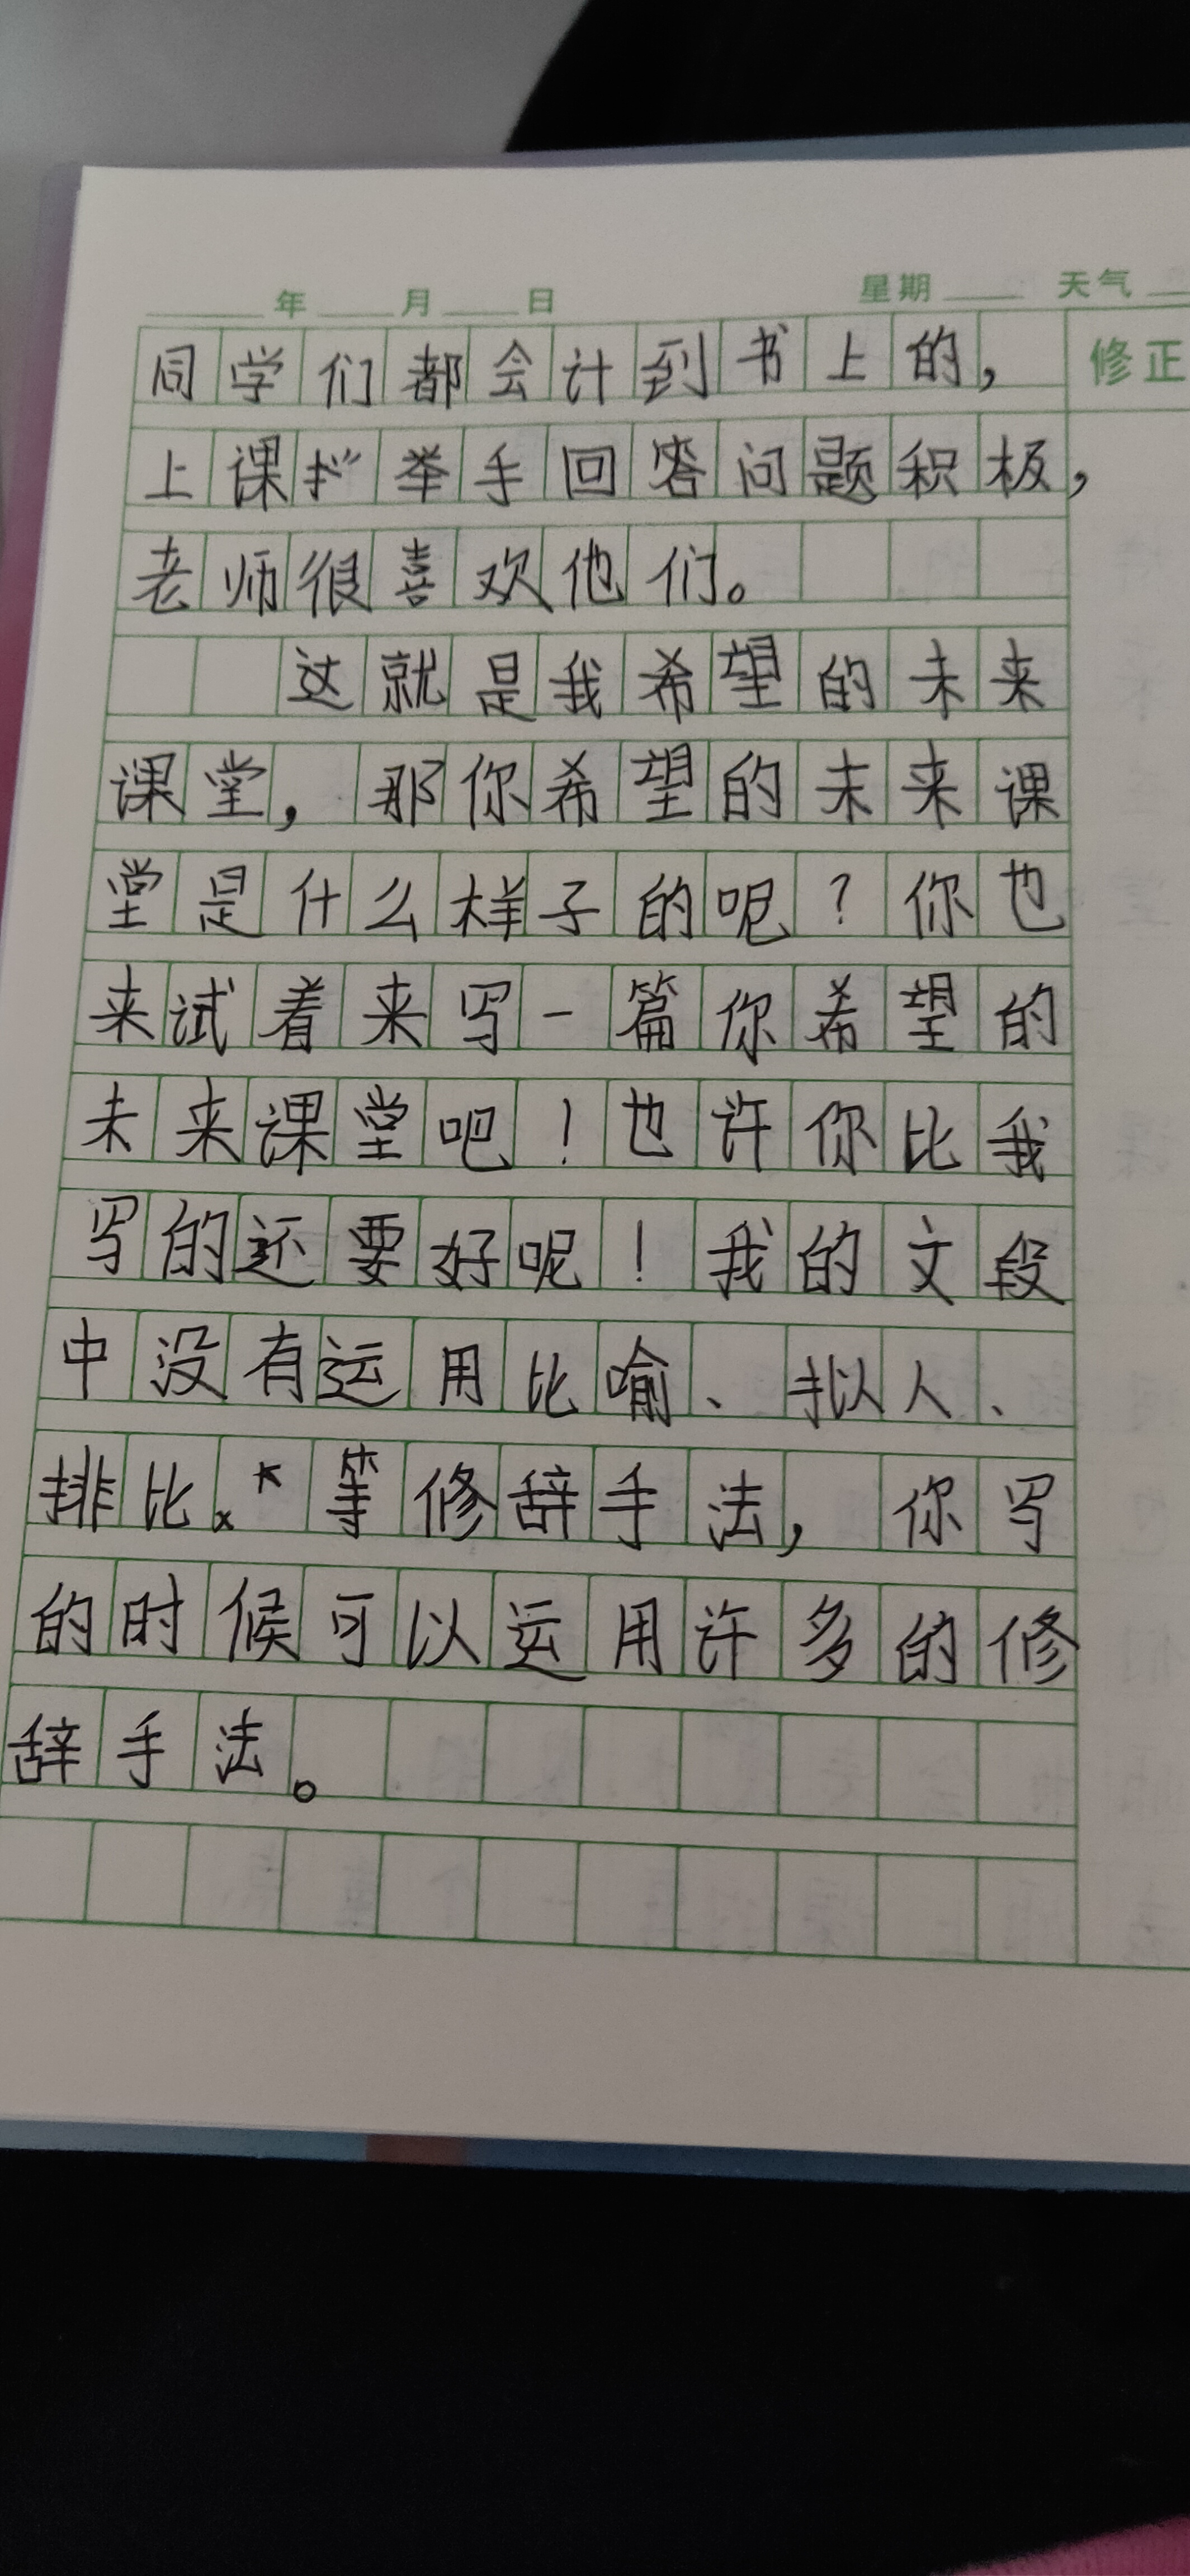 年 月 日 星期 天气
同学们都会计到书上的，
修正
上课举手回答问题积板，
老师很喜欢他们。
这就是我希望的未来
课堂，那你希望的未来课
堂是什么样子的呢？你也
来试着来写一篇你希望的
未来课堂吧！也许你比我
写的还要好呢！我的文段
中没有运用比喻、拟人、
排比等修辞手法，你写
的时候可以运用许多的修
辞手法。